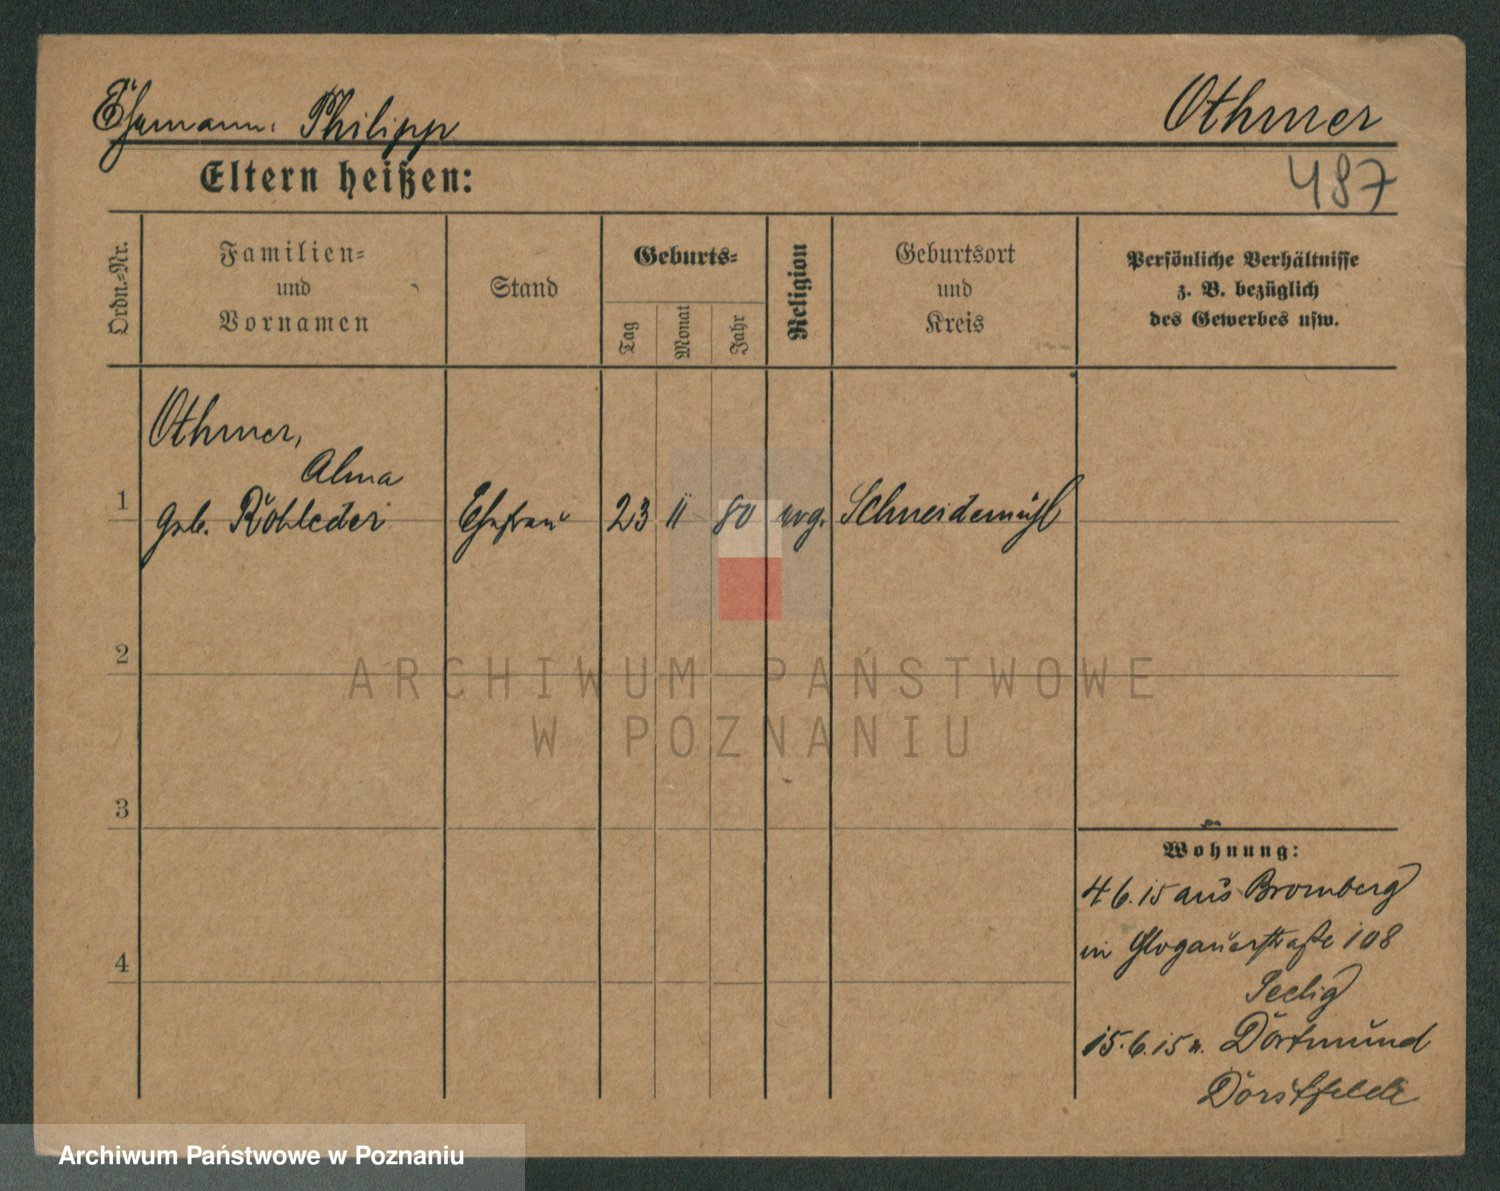 Ehemann: Philipp
Othmer
Eltern heißen:
487
Ordn.-Nr.
Familien-
und
Vornamen
Stand
Geburts-
Tag
Monat
Jahr
Religion
Geburtsort
und
Kreis
Persönliche Verhältnisse
z. B. bezüglich
des Gewerbes usw.
Othmer,
Alma
1
geb. Rohleder
Ehefrau
23
11
80
evg.
Schneidemühl
2
ARCHIWUM PAŃSTWOWE
W POZNANIU
3
Wohnung:
4.6.15 aus Bromberg
in Glogauerstraße 108
4
Seelig
15.6.15 n. Dortmund
Dorstfelde
Archiwum Państwowe w Poznaniu